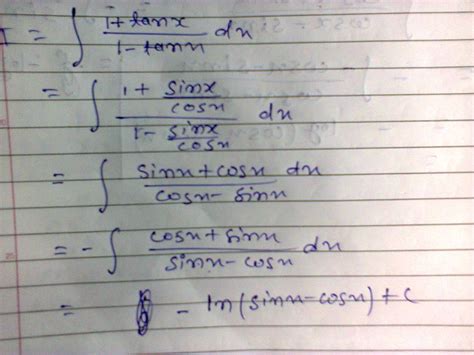 I = ∫ (1+tanx)/(1-tanx) dx
= ∫ (1+ sinx/cosx)/(1- sinx/cosx) dx
= ∫ (sinx+cosx)/(cosx- sinx) dx
= -∫ (cosx+sinx)/(sinx-cosx) dx
= - ln(sinx-cosx)+c